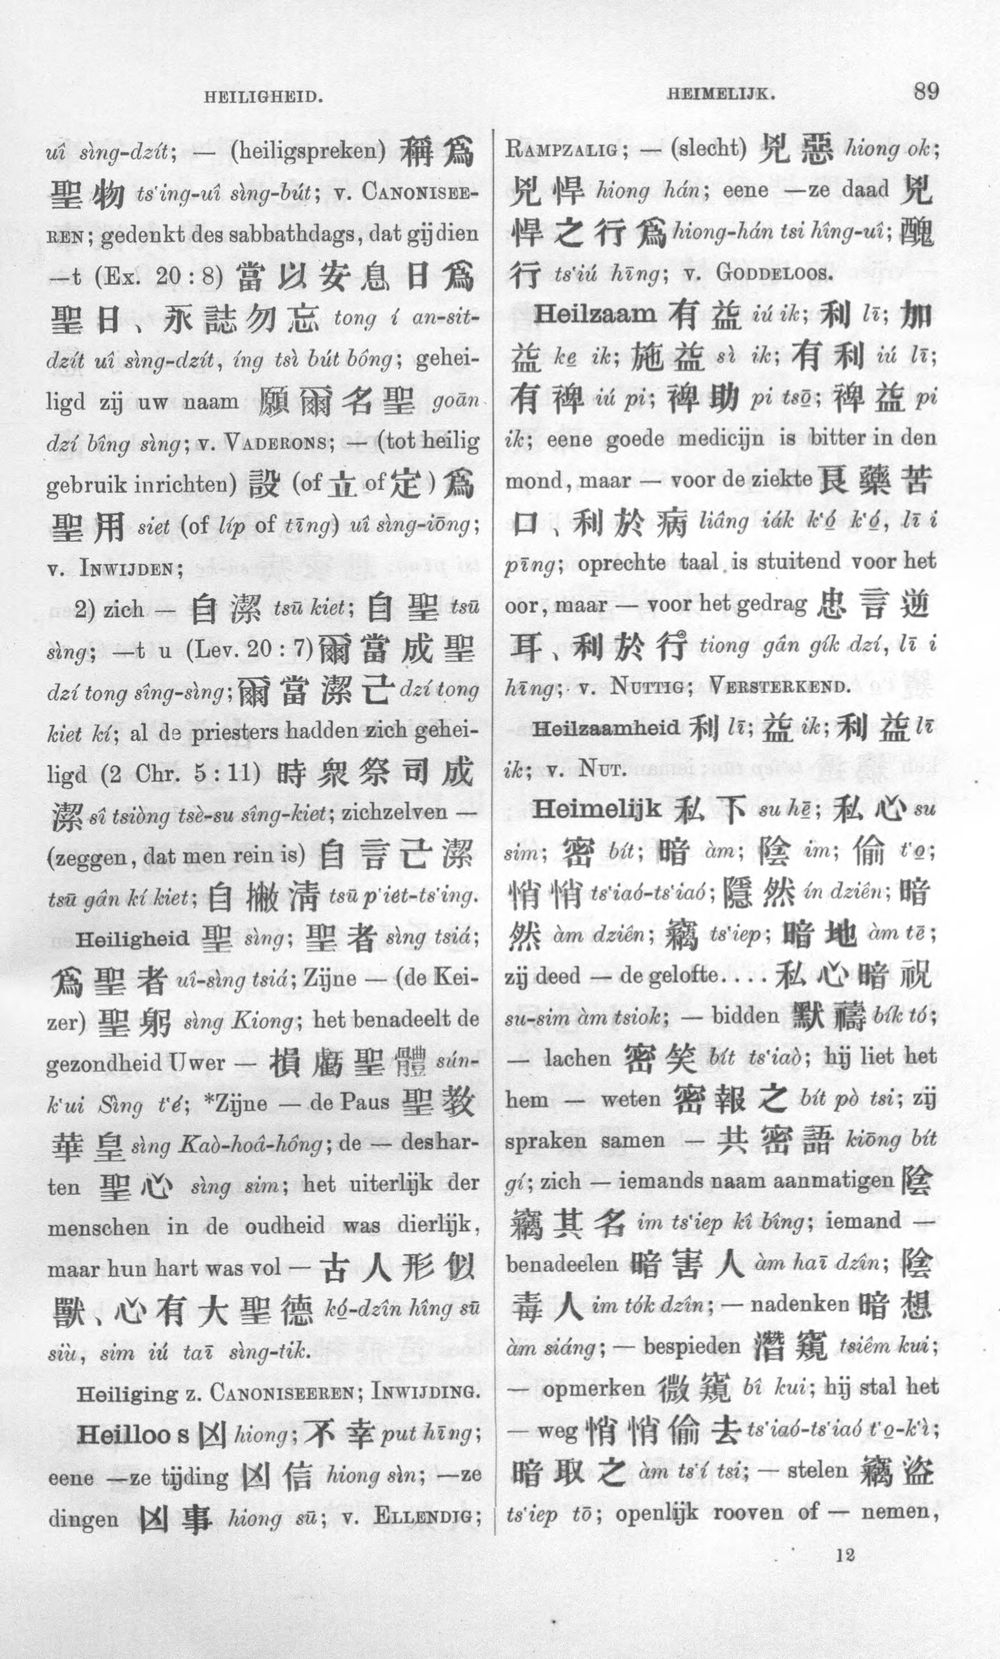 HEILIGHEID.
HEIMELIJK.
89
uî sìng-dzít; — (heiligspreken) 稱爲
聖物 ts'ing-uî sìng-bút; v. CANONISEE-
REN; gedenkt des sabbathdags, dat gij dien
—t (Ex. 20 : 8) 當以安息日爲
聖日、永誌勿忘 tong í an-sit-
dzít uî sìng-dzít, íng tsì bút bóng; gehei-
ligd zij uw naam 願爾名聖 goān
dzí bîng sìng; v. VADERONS; — (tot heilig
gebruik inrichten) 設 (of 立 of 定) 爲
聖用 siet (of líp of tīng) uî sìng-iōng;
v. INWIJDEN;
2) zich — 自潔 tsū kiet; 自聖 tsū
sìng; —t u (Lev. 20 : 7) 爾當成聖
dzí tong sîng-sìng; 爾當潔己 dzí tong
kiet kí; al de priesters hadden zich gehei-
ligd (2 Chr. 5 : 11) 時衆祭司成
潔 sî tsiòng tsè-su sîng-kiet; zichzelven —
(zeggen, dat men rein is) 自言己潔
tsū gân kí kiet; 自撇淸 tsū p'iet-ts'ing.
Heiligheid 聖 sìng; 聖者 sìng tsiá;
爲聖者 uî-sìng tsiá; Zijne — (de Kei-
zer) 聖躬 sìng Kiong; het benadeelt de
gezondheid Uwer — 損虧聖體 sún-
k'ui Sìng t'é; *Zijne — de Paus 聖教
華皇 sìng Kaò-hoâ-hông; de — deshar-
ten 聖心 sìng sim; het uiterlijk der
menschen in de oudheid was dierlijk,
maar hun hart was vol — 古人形似
獸、心有大聖德 kó-dzîn hîng sū
siù, sim iú taī sìng-tik.
Heiliging z. CANONISEEREN; INWIJDING.
Heilloos 凶 hiong; 不幸 put hīng;
eene —ze tijding 凶信 hiong sìn; —ze
dingen 凶事 hiong sū; v. ELLENDIG;
RAMPZALIG; — (slecht) 兇惡 hiong ok;
兇悍 hiong hán; eene —ze daad 兇
悍之行爲 hiong-hán tsi hîng-uî; 醜
行 ts'iú hīng; v. GODDELOOS.
Heilzaam 有益 iú ik; 利 lī; 加
益 ke ik; 施益 sì ik; 有利 iú lī;
有裨 iú pi; 裨助 pi tsō; 裨益 pi
ik; eene goede medicijn is bitter in den
mond, maar — voor de ziekte 良藥苦
口、利於病 liâng iák k'ó k'ó, lī i
pīng; oprechte taal is stuitend voor het
oor, maar — voor het gedrag 忠言逆
耳、利於行 tiong gân gík dzí, lī i
hīng; v. NUTTIG; VERSTERKEND.
Heilzaamheid 利 lī; 益 ik; 利益 lī
ik; v. NUT.
Heimelijk 私下 su hē; 私心 su
sim; 密 bít; 暗 àm; 陰 im; 偷 t'o;
悄悄 ts'iaó-ts'iaó; 隱然 ín dziên; 暗
然 àm dziên; 竊 ts'iep; 暗地 àm tē;
zij deed — de gelofte.... 私心暗祝
su-sim àm tsiok; — bidden 默禱 bík tó;
— lachen 密笑 bít ts'iaò; hij liet het
hem — weten 密報之 bít pò tsi; zij
spraken samen — 共密語 kiōng bít
gí; zich — iemands naam aanmatigen 陰
竊其名 im ts'iep kî bîng; iemand —
benadeelen 暗害人 àm haī dzîn; 陰
毒人 im tók dzîn; — nadenken 暗想
àm siáng; — bespieden 潛窺 tsiêm kui;
— opmerken 微窺 bî kui; hij stal het
— weg 悄悄偷去 ts'iaó-ts'iaó t'o-k'ì;
暗取之 àm ts'í tsi; — stelen 竊盜
ts'iep tō; openlijk rooven of — nemen,
12